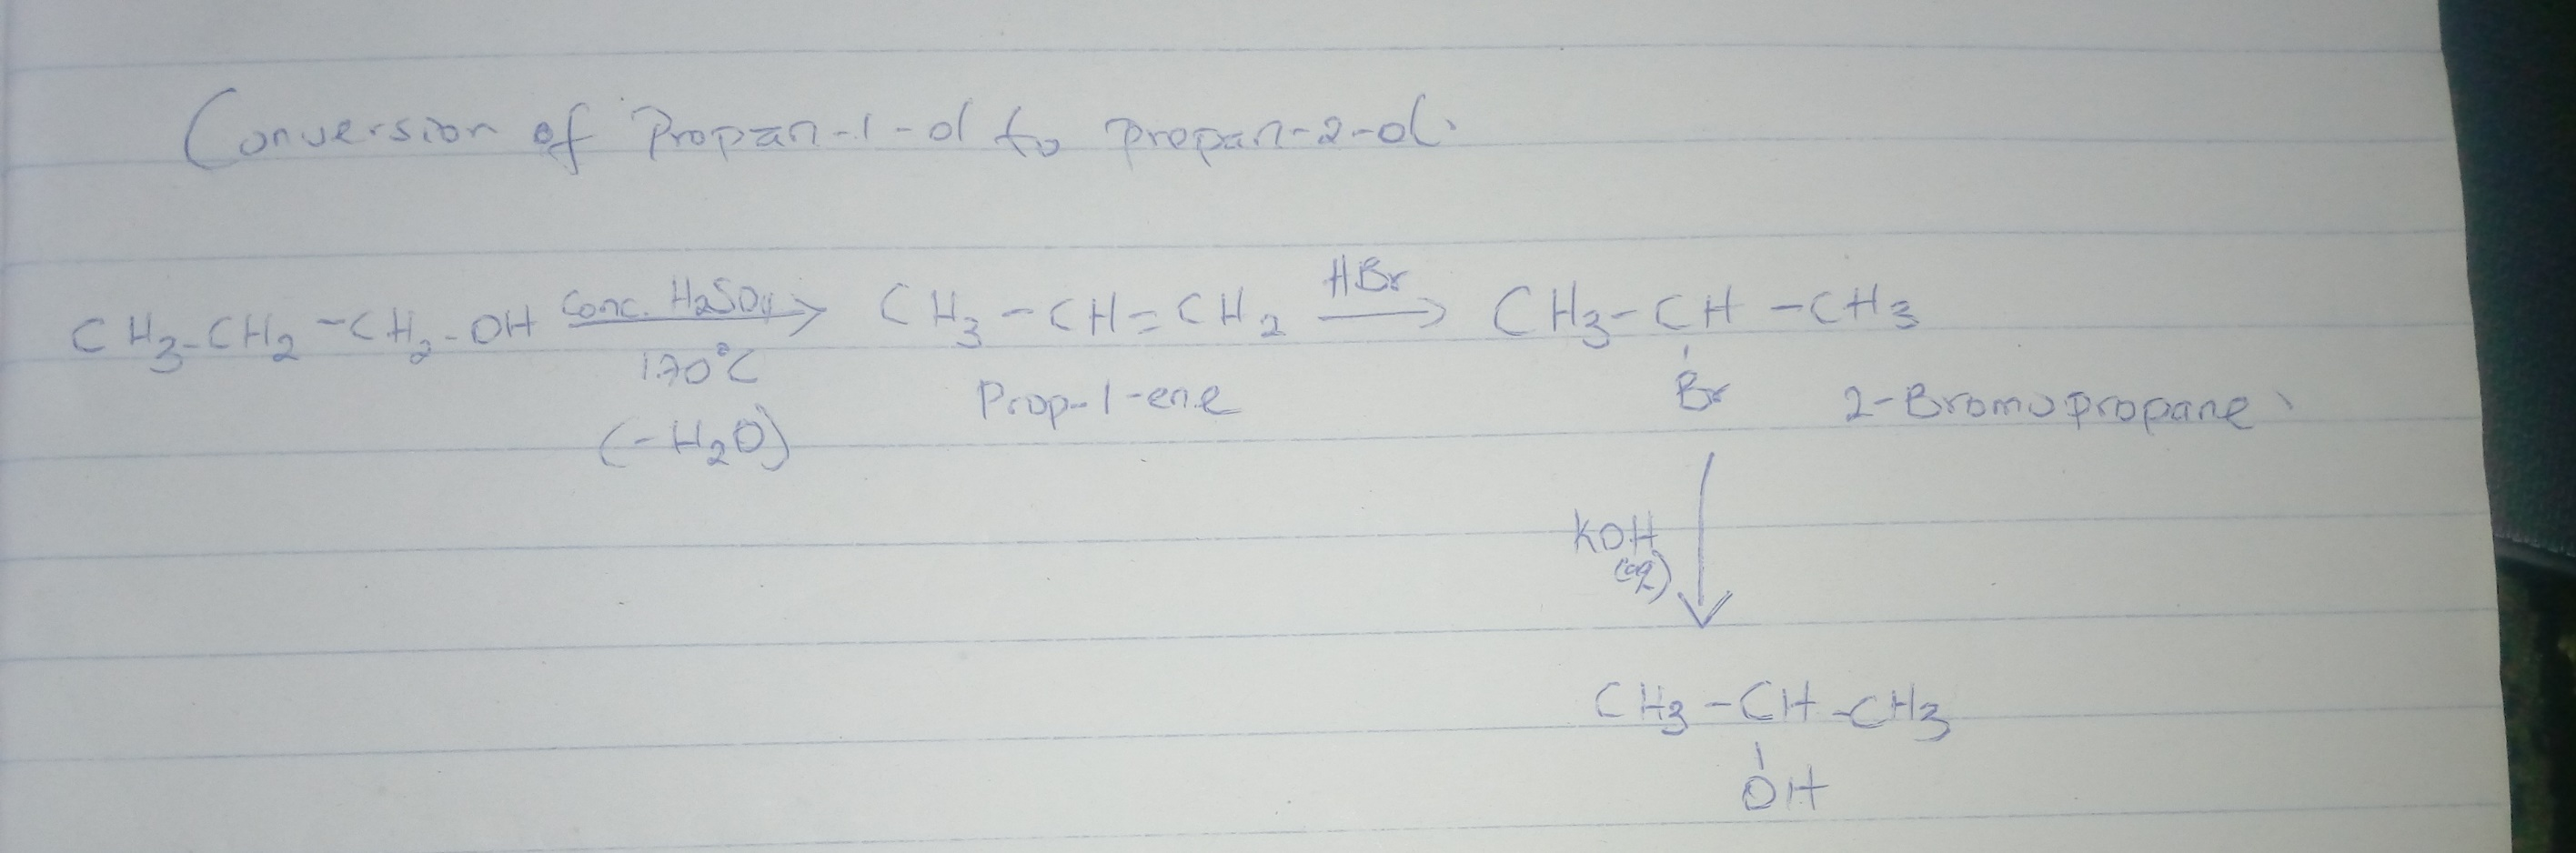 Conversion of Propan-1-ol to propan-2-ol.
CH3-CH2-CH2-OH conc. H2SO4 → CH3-CH=CH2 HBr → CH3-CH-CH3
170°C
(-H2O)
Prop-1-ene
Br
2-Bromopropane
KOH
(aq)
CH3-CH-CH3
OH